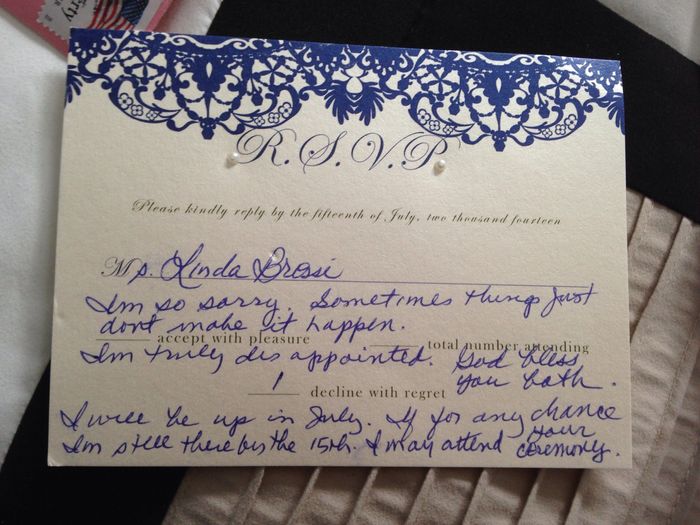 Forty
R.S.V.P
Please kindly reply by the fifteenth of July, two thousand fourteen
Ms. Linda Brossi
Im so sorry. Sometimes things just
dont make it happen.
accept with pleasure total number attending
Im truly disappointed. God bless
you both.
1 decline with regret
I will be up in July. If for any chance
Im still there by the 15th. I may attend your
ceremony.